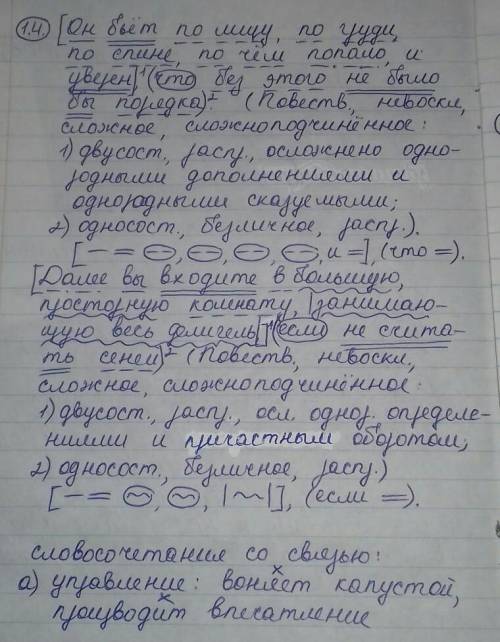 1.4. [Он бьёт по лицу, по груди,
по спине, по чём попало, и
уверен]¹, (что без этого не было
бы порядка)². (Повеств., невоскл.,
сложное, сложноподчинённое:
1) двусост., расп., осложнено одно-
родными дополнениями и
однородными сказуемыми;
2) односост., безличное, расп.).
[— = ⊖, ⊖, ⊖, ⊖, и =], (что =).
[Далее вы входите в большую,
просторную комнату, |занимаю-
щую весь флигель|]¹, (если не счита-
ть сеней)². (Повеств., невоскл.,
сложное, сложноподчинённое:
1) двусост., расп., осл. однор. определе-
ниями и причастным оборотом;
2) односост., безличное, расп.)
[— = ⊖, ⊖, |~|], (если =).
словосочетания со связью:
а) управление: воняет капустой,
производит впечатление